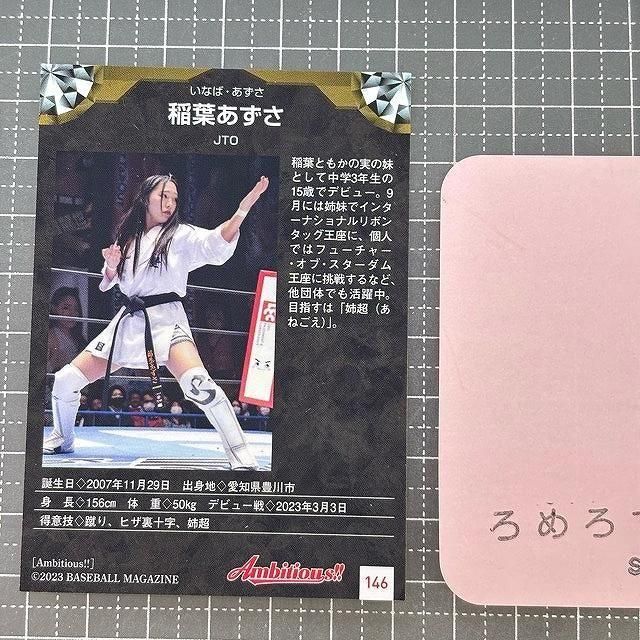 いなば・あずさ
稲葉あずさ
JTO
稲葉ともかの実の妹
として中学3年生の
15歳でデビュー。9
月には姉妹でインタ
ーナショナルリボン
タッグ王座に、個人
ではフューチャー
・オブ・スターダム
王座に挑戦するなど、
他団体でも活躍中。
目指すは「姉超（あ
ねごえ）」。
誕生日◇2007年11月29日 出身地◇愛知県豊川市
身 長◇156cm 体 重◇50kg デビュー戦◇2023年3月3日
得意技◇蹴り、ヒザ裏十字、姉超
[Ambitious!!]
©2023 BASEBALL MAGAZINE
Ambitious!!
146
ろめろ
S